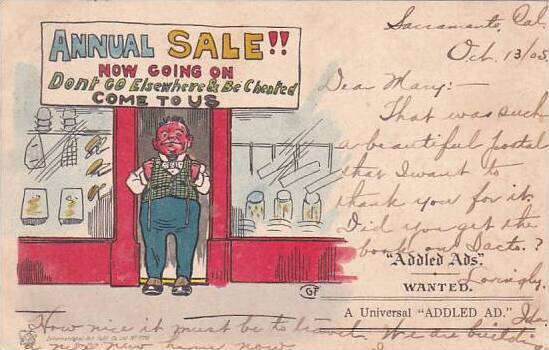 ANNUAL SALE!!
NOW GOING ON
Dont GO Elsewhere & Be Cheated
COME TO US
Sacramento, Cal.
Oct. 13/05.
Dear Mary:-
That was such
a beautiful postal
that I want to
thank you for it.
Did you get the
book on Sacto.?
"Addled Ads."
Lovingly,
WANTED.
A Universal "ADDLED AD."
Ida
How nice it must be to travel. We are building
a new home now